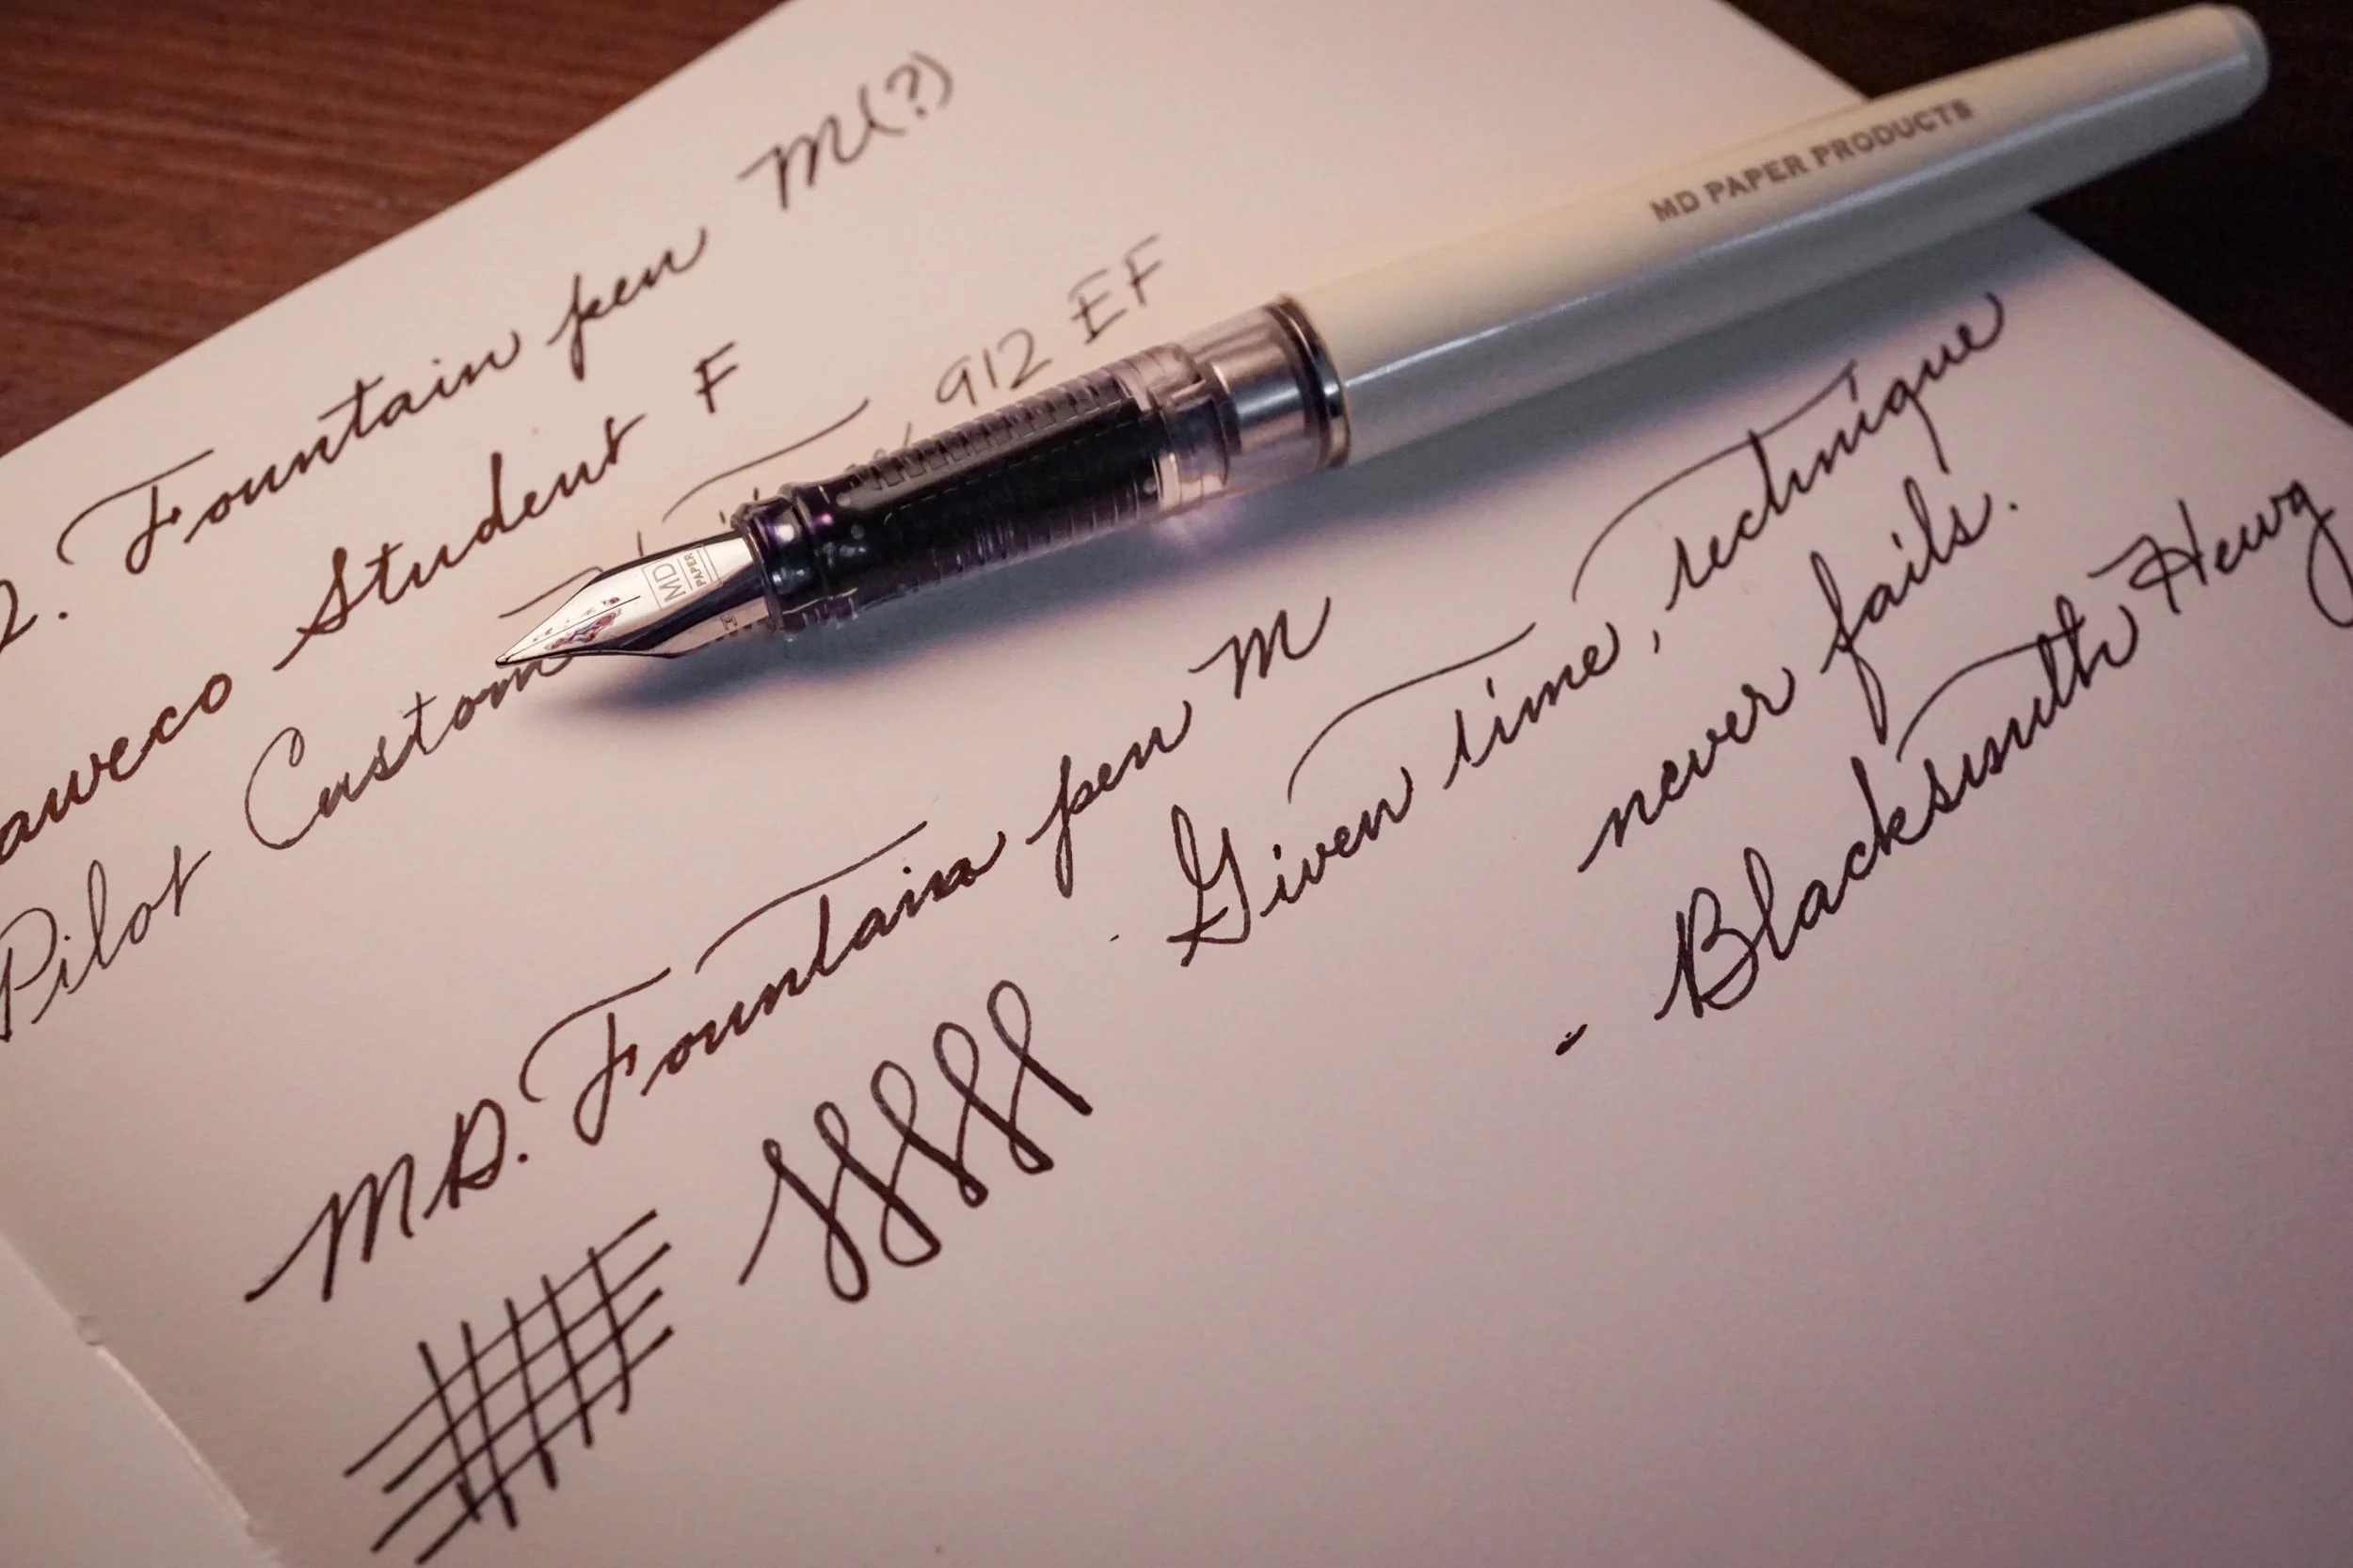 Fountain pen M(?)
aweco Student F
Pilot Custom 912 EF
MD PAPER PRODUCTS
MD
PAPER
MD. Fountain pen M
Given time, technique
never fails.
- Blacksmith Hewg